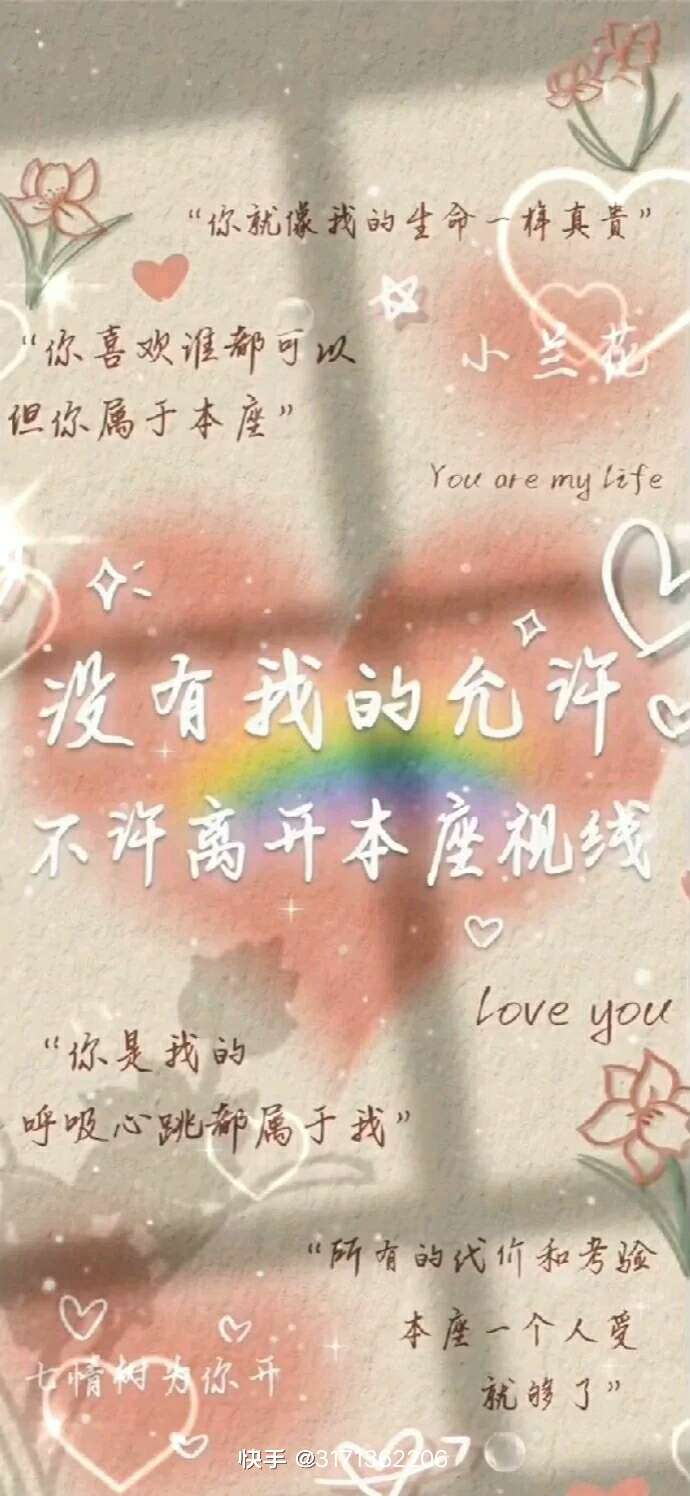 “你就像我的生命一样真贵”
“你喜欢谁都可以
但你属于本座”
小兰花
You are my life
没有我的允许
不许离开本座视线
love you
“你是我的
呼吸心跳都属于我”
“所有的代价和考验
本座一个人受
就够了”
七情树为你开
快手 @3171362206